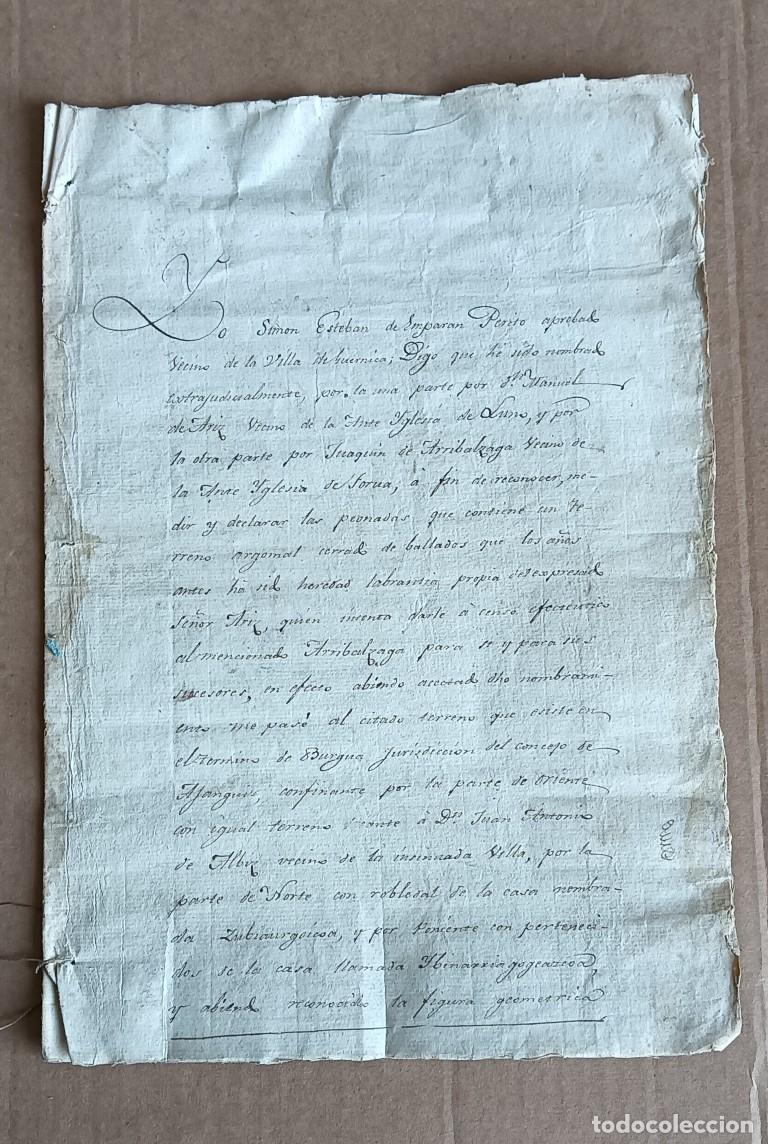 Yo Simon Esteban de Emparan Perito aprobado
Vecino de la Villa de Guernica; Digo que hé sido nombrado
extrajudicialmente, por la una parte por Dn. Manuel
de Ariz Vecino de la Ante Yglesia de Luno, y por
la otra parte por Juaquin de Arribalzaga Vecino de
la Ante Yglesia de Forua, á fin de reconocer, me-
dir y declarar las peonadas que contiene un te-
rreno argomal cerrado de ballados que los años
antes ha sido heredad labrantia propia del expresado
Señor Ariz, quien intenta darle á censo
al mencionado Arribalzaga para si y para sus
sucesores, en efecto abiendo acectado dho nombrami-
ento me pasé al citado terreno que esiste en
el termino de Burgua Jurisdiccion del concejo de
Ajanguiz, confinante por la parte de oriente
con igual terreno á Dn. Juan Antonio
de Albiz vecino de la insinuada Villa, por la
parte de Norte con robledal de la casa nombra-
da y por Poniente con perteneci-
dos de la casa llamada
y abiendo reconocido la figura geometrica
todocoleccion